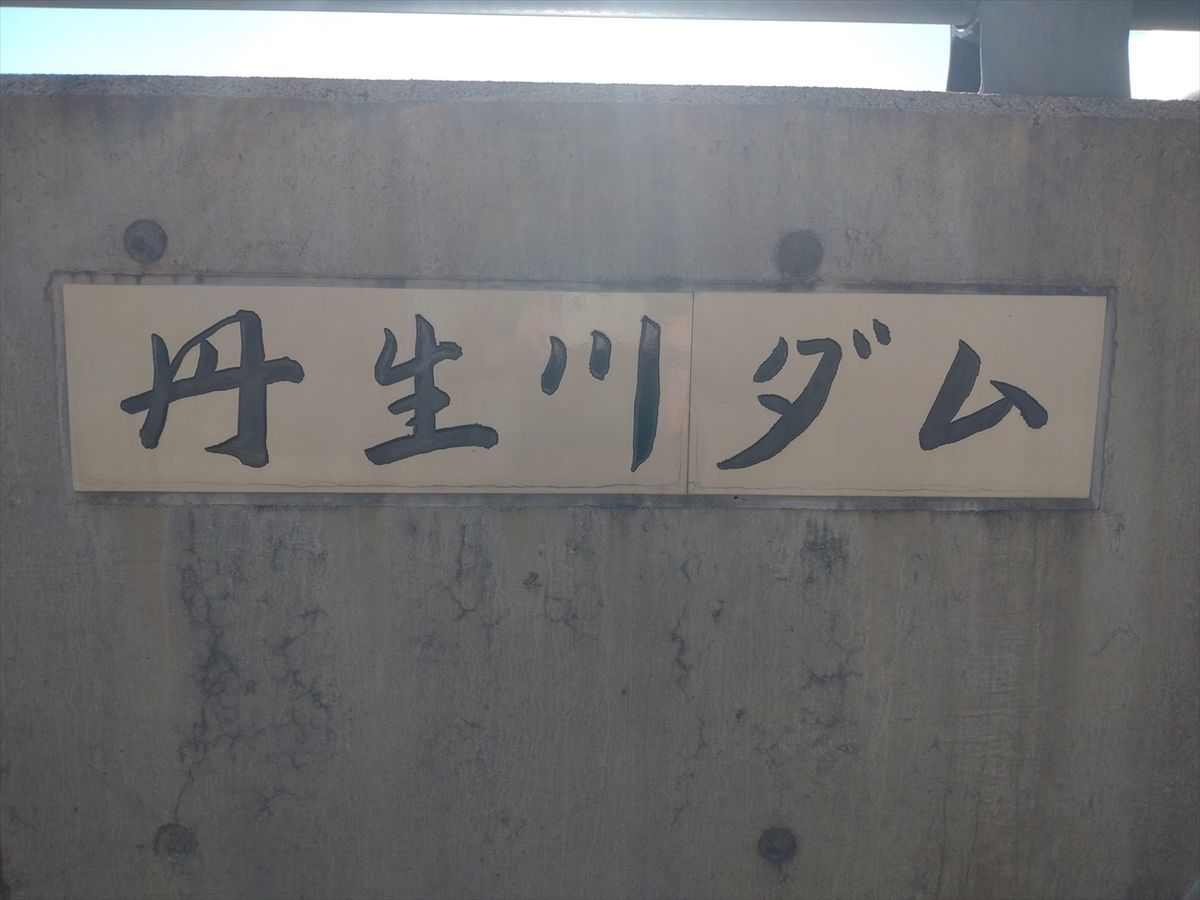 丹生川ダム